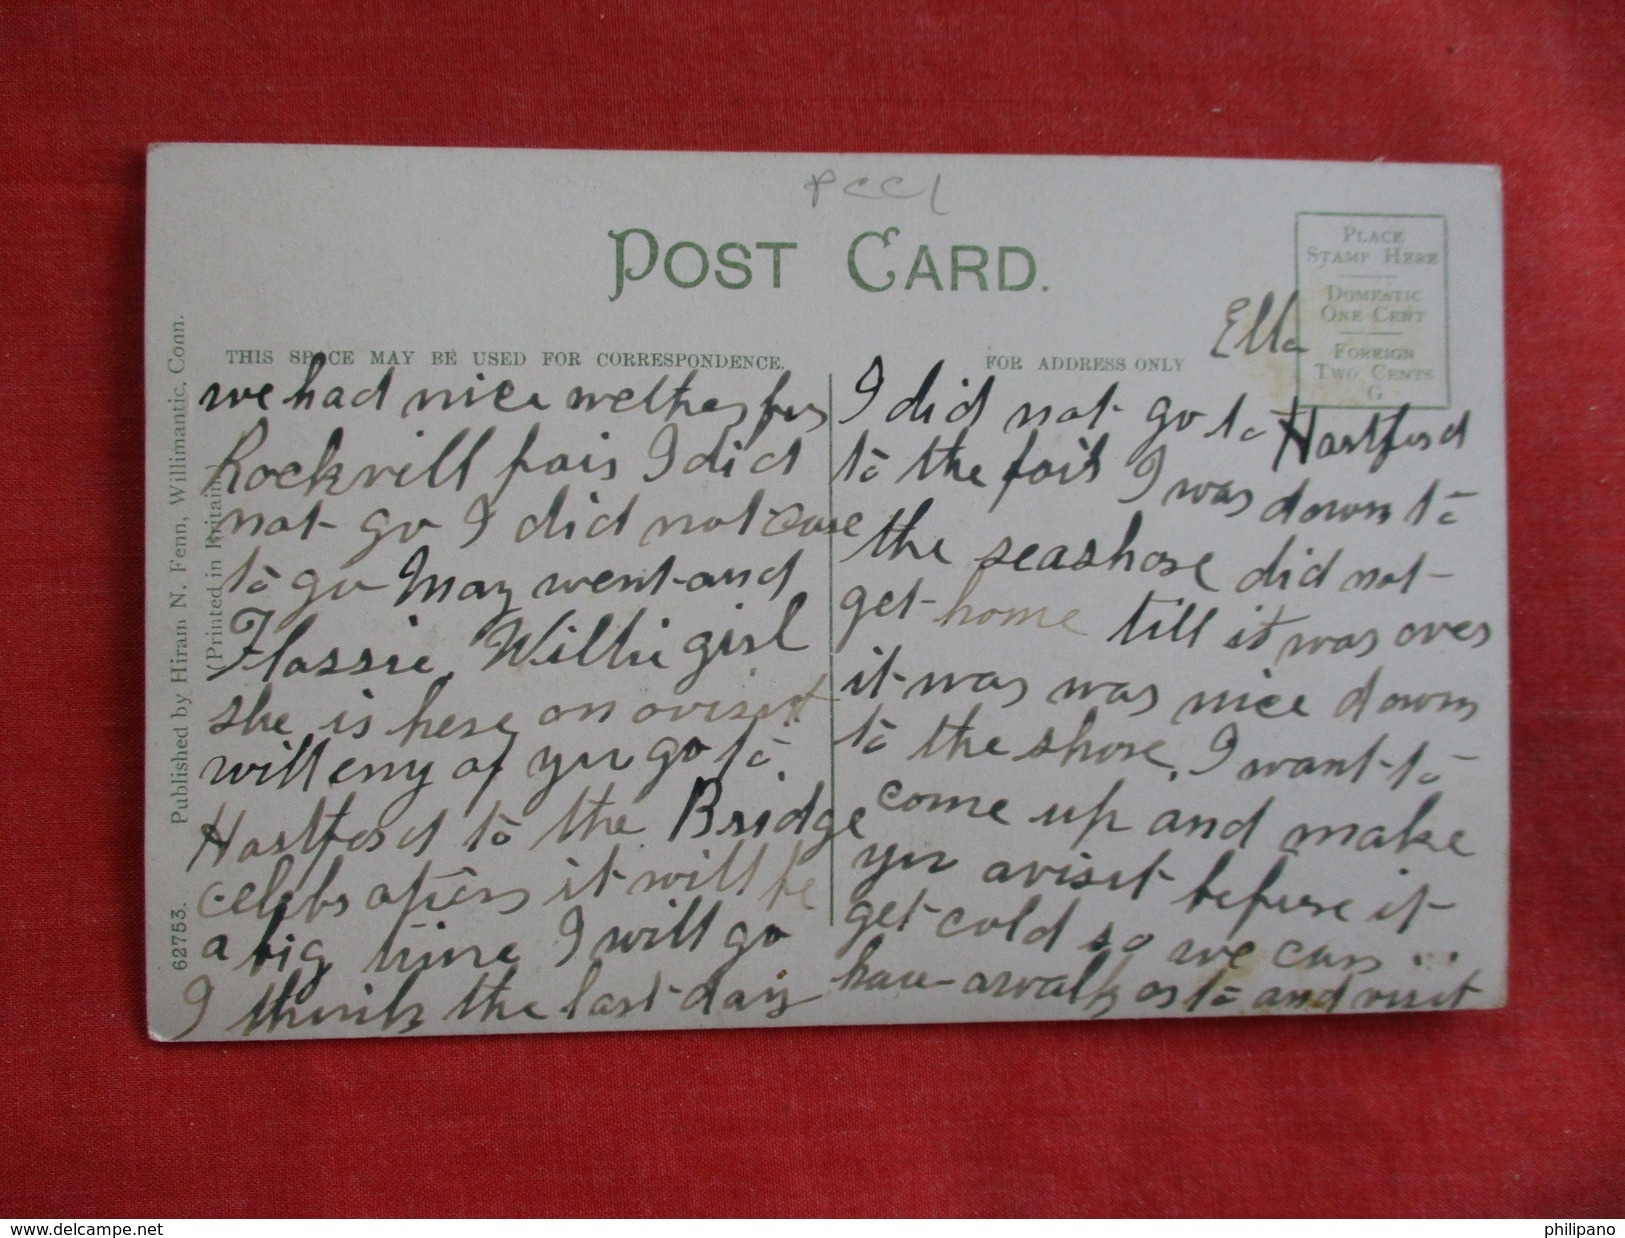 PCCL
POST CARD.
PLACE
STAMP HERE
DOMESTIC
ONE CENT
FOREIGN
TWO CENTS
G
THIS SPACE MAY BE USED FOR CORRESPONDENCE.
FOR ADDRESS ONLY
Published by Hiram N. Fenn, Willimantic, Conn.
(Printed in Britain)
62753.
we had nice wether for
Rockvill fair I did
not go I did not care
to go May went and
Flossie, Willie girl
she is here on a visit
will eny of you go to
Hartford to the Bridge
celebration it will be
a big time I will go
I think the last day
Ella
I did not go to Hartford
to the fair I was down to
the seashore did not
get home till it was over
it was was nice down
to the shore. I want to
come up and make
you a visit before it
get cold so we can ...
have a walk or to and visit
www.delcampe.net
philipano